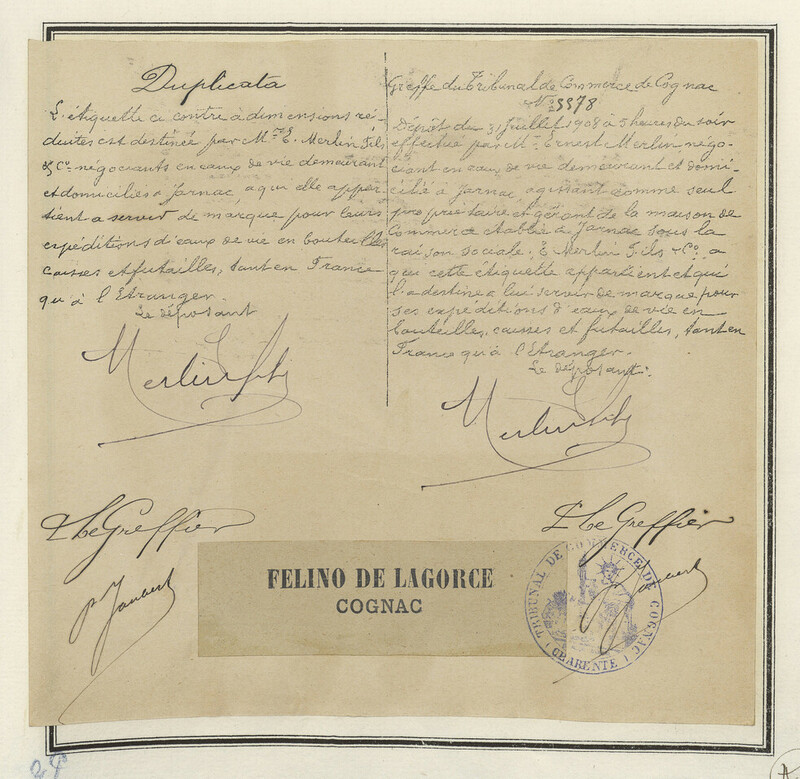 Duplicata
L'étiquette ci contre à dimensions ré-
duites est destinée par Mrs E. Merlin Fils
& Co négociants en eaux de vie demeurant
et domiciliés à Jarnac à qui elle appar-
tient a servir de marque pour leurs
expéditions d'eaux de vie en bouteilles
caisses et futailles, tant en France
qu'à l'Etranger.
Le déposant
Merlin Fils
Le Greffier
Greffe du Tribunal de Commerce de Cognac
Dépôt du 31 Juillet 1908 à 5 heures du soir
effectué par Mr Ernest Merlin négo-
ciant en eaux de vie demeurant et domi-
cilié à Jarnac agissant comme seul
propriétaire et gérant de la maison de
Commerce établie à Jarnac sous la
raison sociale. E. Merlin Fils & Co. a
qui cette étiquette appartient et qui
l'a destine a lui servir de marque pour
ses expéditions d'eaux de vie en
bouteilles, caisses et futailles, tant en
France qu'à l'Etranger.
Le déposant.
Merlin Fils
Le Greffier
FELINO DE LAGORCE
COGNAC
TRIBUNAL DE COMMERCE DE COGNAC
(CHARENTE)